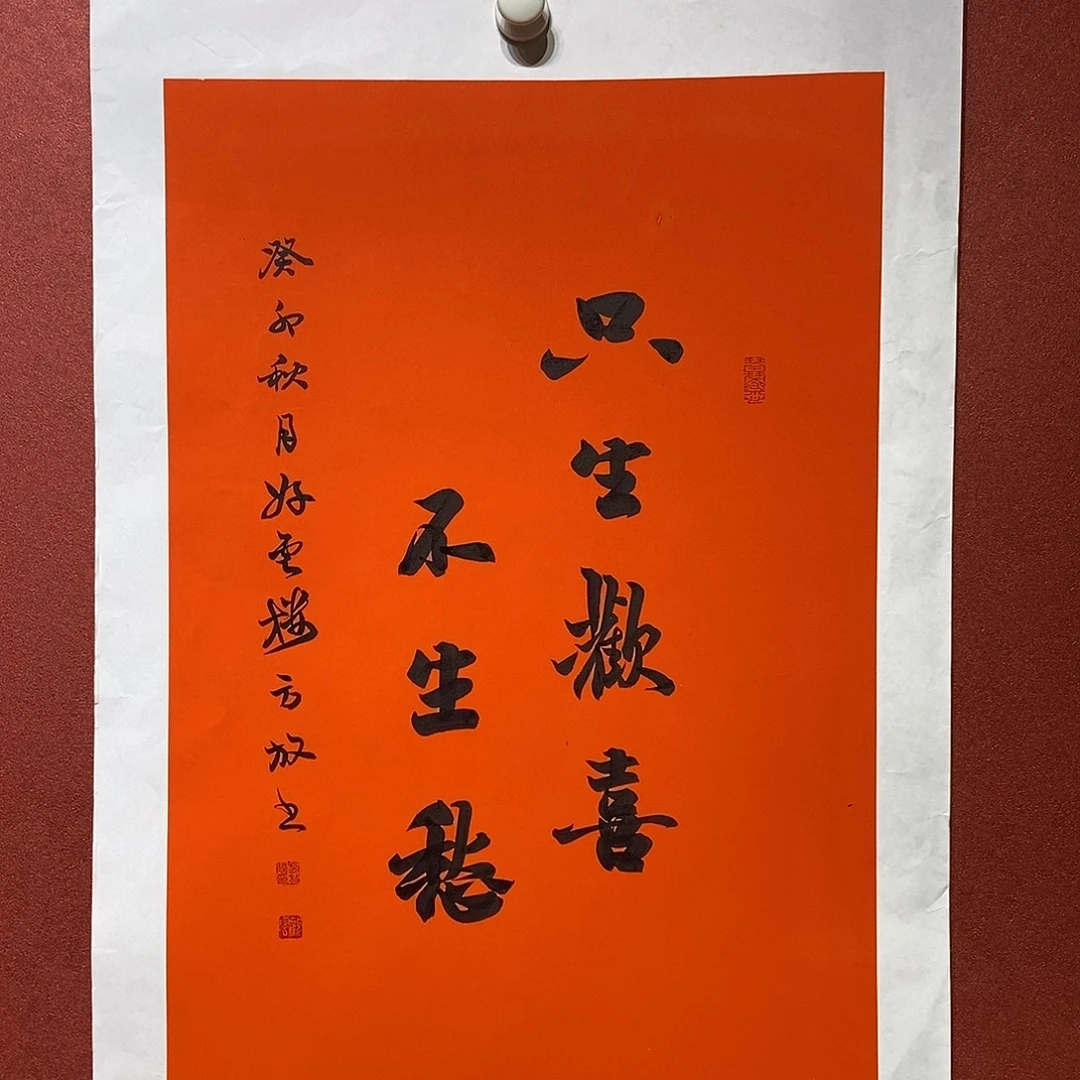 只生歡喜
不生愁
癸卯秋月好雲樓方放书